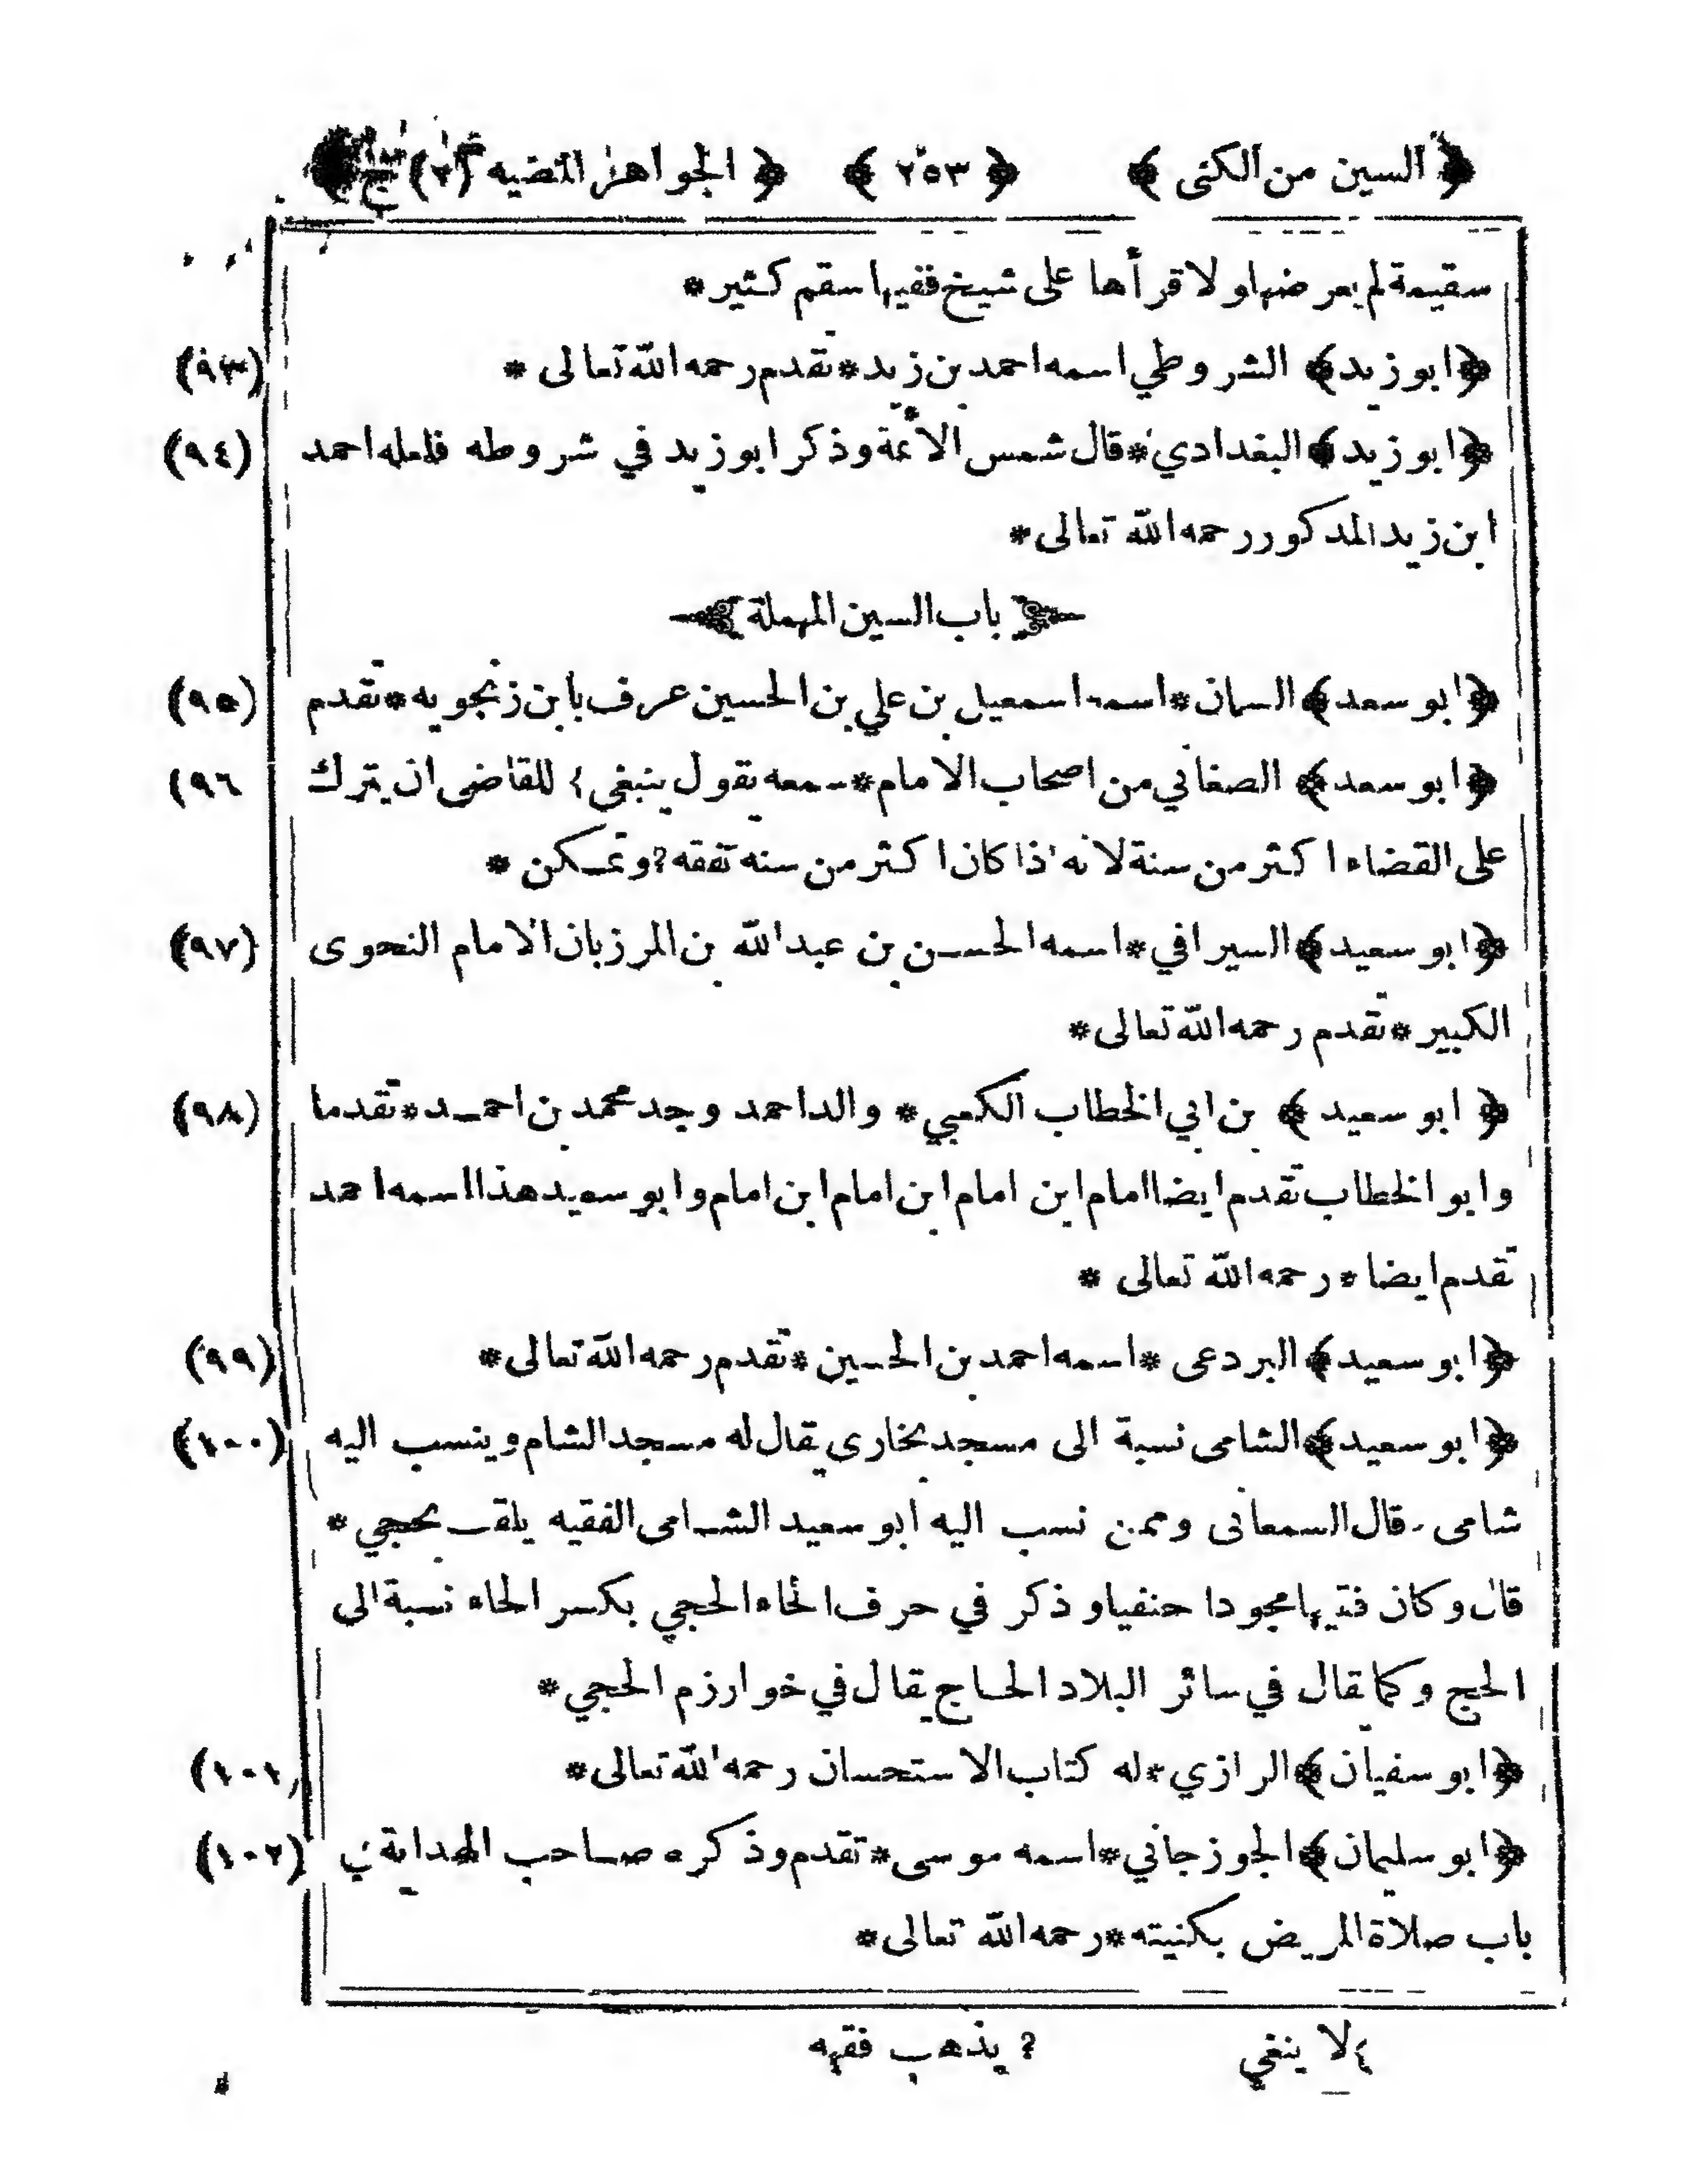 ﴿ السين من الكنى ﴾ ﴿ ٢٥٣ ﴾ ﴿ الجواهر المضيه (٢) ج ﴾
سقيمة لم يعرضها ولا قرأها على شيخ ففيها سقم كثير *
﴿ ابو زيد ﴾ الشروطي اسمه احمد بن زيد * تقدم رحمه الله تعالى * (٩٣)
﴿ ابو زيد ﴾ البغدادي * قال شمس الائمة وذكر ابو زيد في شروطه فلعله احمد (٩٤)
ابن زيد المذكور رحمه الله تعالى *
باب السين المهملة
﴿ ابو سعد ﴾ السمان * اسمه اسمعيل بن علي بن الحسين عرف بابن زنجويه * تقدم (٩٥)
﴿ ابو سعد ﴾ الصغاني من اصحاب الامام * سمعه يقول ينبغي ٤ للقاضى ان يترك (٩٦
على القضاء اكثر من سنة لانه اذا كان اكثر من سنه تفقه ? وتمكن *
﴿ ابو سعيد ﴾ السيرافي * اسمه الحسن بن عبد الله بن المرزبان الامام النحوى (٩٧)
الكبير * تقدم رحمه الله تعالى *
﴿ ابو سعيد ﴾ بن ابي الخطاب الكعبي * والد احمد وجد محمد بن احمد * تقدما (٩٨)
وابو الخطاب تقدم ايضا امام ابن امام ابن امام ابن امام وابو سعيد هذا اسمه احمد
تقدم ايضا * رحمه الله تعالى *
﴿ ابو سعيد ﴾ البردعى * اسمه احمد بن الحسين * تقدم رحمه الله تعالى * (٩٩)
﴿ ابو سعيد ﴾ الشامى نسبة الى مسجد بخارى يقال له مسجد الشام وينسب اليه (١٠٠)
شامى . قال السمعانى وممن نسب اليه ابو سعيد الشامى الفقيه يلقب بحجي *
قال وكان فقيها مجودا حنفيا وذكر في حرف الحاء الحجي بكسر الحاء نسبة الى
الحج وكما يقال في سائر البلاد الحاج يقال في خوارزم الحجي *
﴿ ابو سفيان ﴾ الرازي * له كتاب الاستحسان رحمه الله تعالى * (١٠١)
﴿ ابو سليمان ﴾ الجوزجاني * اسمه موسى * تقدم وذكره صاحب الهداية في (١٠٢)
باب صلاة المريض بكنيته * رحمه الله تعالى *
٤ لا ينغي ? يذهب فقهه